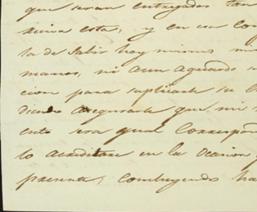 que seran entregados
seria esta, y en su
la de salir hoy mismo
manos, ni aun aguardo
cion para suplicarle se
diendo asegurarle que mi
esto sea qual correspon
lo acreditare en la ocasion
presente; concluyendo ha